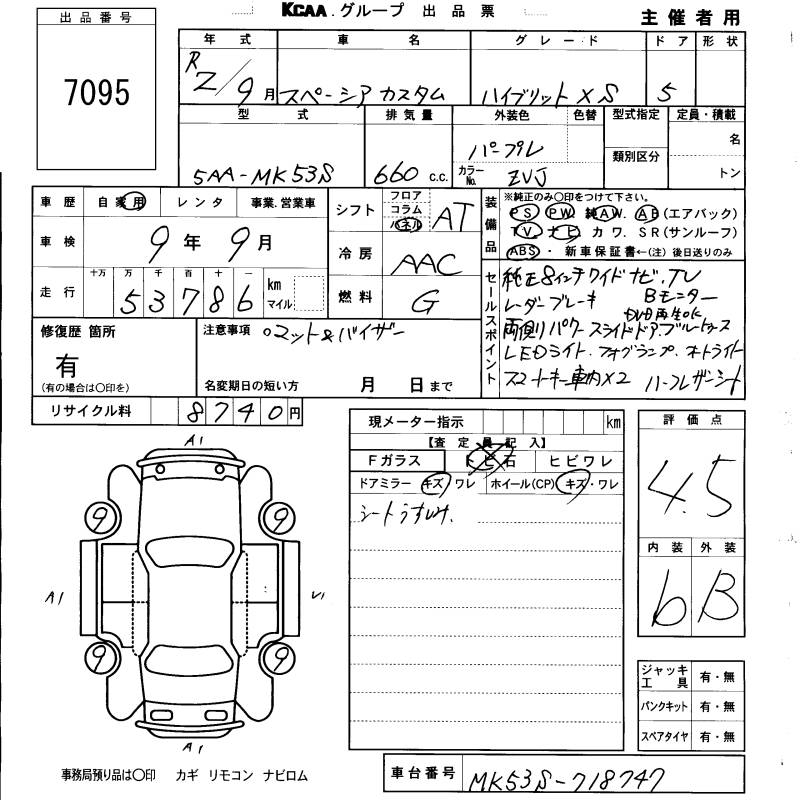 KCAA.グループ 出品票
主催者用
出品番号
7095
年式 車名 グレード ドア 形状
R2/9月 スペーシア カスタム ハイブリット XS 5
型式 排気量 外装色 色替 型式指定 定員・積載
5AA-MK53S 660 c.c. パープル 名
カラーNo. ZVJ 類別区分 トン
車歴 自家用 レンタ 事業.営業車
シフト フロア コラム パネル AT
装備品 ※純正のみ○印をつけて下さい。
PS PW 純AW. AB(エアバック)
TV ナビ カワ. SR(サンルーフ)
ABS・ 新車保証書←(注)後日送りのみ
車検 9年9月
冷房 AAC
走行 十万 万 千 百 十 一
53786 km マイル
燃料 G
セールスポイント
純正8インチワイドナビ.TV
レーダーブレーキ Bモニター
DVD再生OK
両側パワースライドドア ブルートゥース
LEDライト.フォグランプ.オートライト
スマートキー車内×2 ハーフレザーシート
修復歴 箇所
有
(有の場合は○印を)
注意事項 ○マット&バイザー
名変期日の短い方 月 日まで
リサイクル料 8740円
現メーター指示 km
【査定員記入】
Fガラス トビ石 ヒビワレ
ドアミラー キズ・ワレ ホイール(CP) キズ・ワレ
シートうすしみ.
評価点
4.5
内装 外装
b B
A1
9 9
A1 V1
9 9
A1
ジャッキ工具 有・無
パンクキット 有・無
スペアタイヤ 有・無
事務局預り品は○印 カギ リモコン ナビロム
車台番号 MK53S-718747